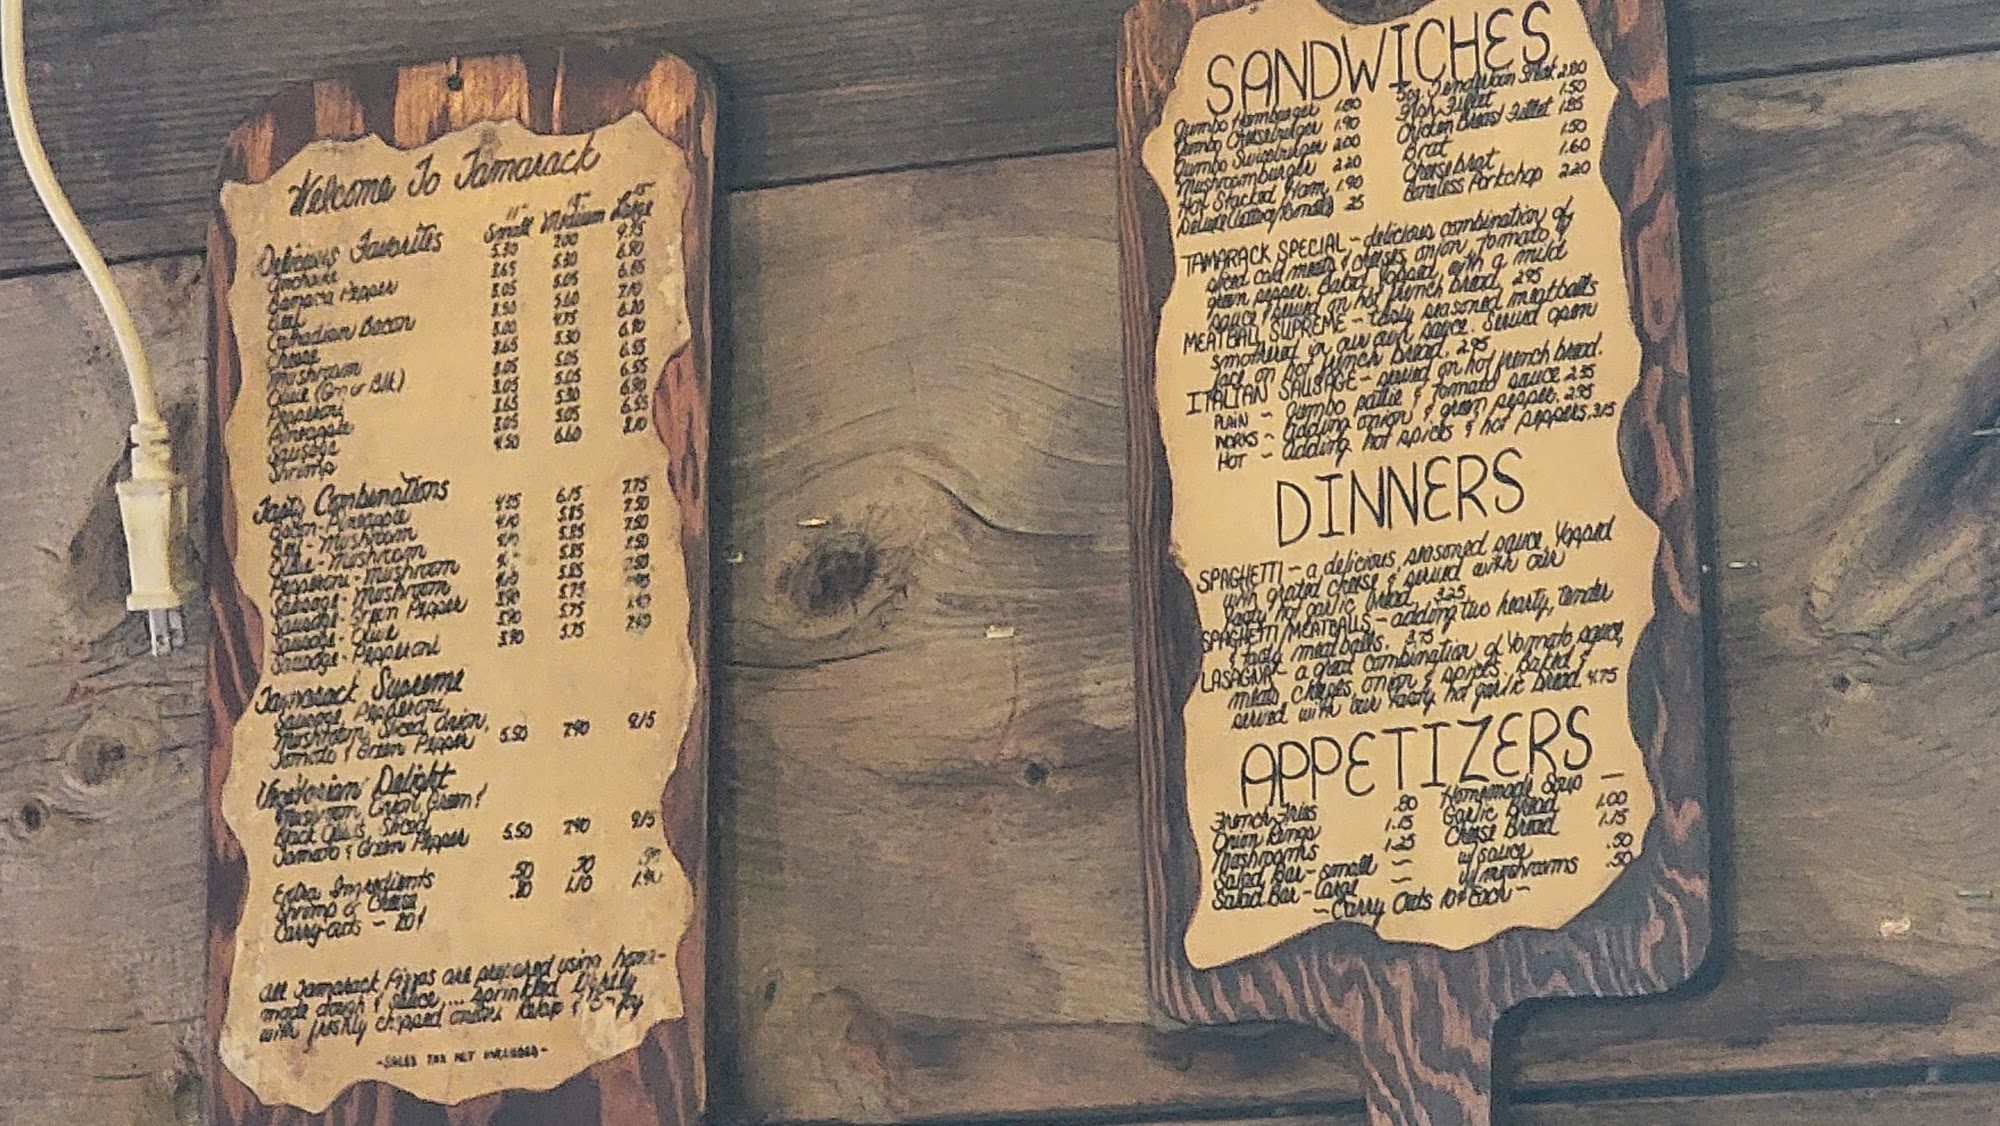 Welcome To Tamarack
11" 13" 15"
Delicious Favorites Small Medium Large
Anchovie 5.30 7.00 9.75
Banana Pepper 3.65 5.30 6.90
Beef 3.05 5.05 6.55
Canadian Bacon 3.50 5.60 7.10
Cheese 3.00 4.75 6.20
Mushroom 3.65 5.30 6.90
Olive (Grn or Blk) 3.05 5.05 6.55
Pepperoni 3.05 5.05 6.55
Pineapple 3.65 5.30 6.90
Sausage 3.05 5.05 6.55
Shrimp 4.50 6.60 8.10
Tasty Combinations
Bacon-Pineapple 4.35 6.15 7.75
Beef-Mushroom 4.10 5.85 7.50
Olive-Mushroom 5.85 7.50
Pepperoni-Mushroom 5.85 7.50
Sausage-Mushroom 4.10 5.85 7.50
Sausage-Green Pepper 3.90 5.75
Sausage-Olive 3.90 5.75 7.40
Sausage-Pepperoni 3.90 5.75 7.40
Tamarack Supreme
Sausage, Pepperoni,
Mushroom, Sliced Onion,
Tomato & Green Pepper 5.50 7.40 9.15
Vegetarian Delight
Mushroom, Onion, Green &
Black Olives, Sliced
Tomato & Green Pepper 5.50 7.40 9.15
Extra Ingredients .50 .70
Shrimp & Cheese .80 1.10
Carry-outs - 20¢
All Tamarack Pizzas are prepared using home-
made dough & sauce... sprinkled lightly
with freshly chopped onions. Relax & Enjoy
-SALES TAX NOT INCLUDED-
SANDWICHES
Jumbo Hamburger 1.80 5oz. Tenderloin Steak 2.80
Jumbo Cheeseburger 1.90 Fish Fillet 1.50
Jumbo Swissburger 2.00 Chicken Breast Fillet 1.85
Mushroomburger 2.20 Brat 1.50
Hot Stacked Ham 1.90 Cheesebrat 1.60
Deluxe (Lettuce/Tomato) .25 Boneless Porkchop 2.20
TAMARACK SPECIAL - delicious combination of
sliced cold meats & cheeses, onion, tomato &
green pepper. Baked, topped with a mild
sauce & served on hot french bread. 2.95
MEATBALL SUPREME - tasty seasoned meatballs
smothered in our own sauce. Served open
face on hot french bread. 2.95
ITALIAN SAUSAGE - served on hot french bread.
PLAIN - Jumbo pattie & tomato sauce 2.55
WORKS - adding onion & green pepper. 2.95
HOT - adding hot spices & hot peppers. 3.15
DINNERS
SPAGHETTI - a delicious, seasoned sauce, topped
with grated cheese & served with our
tasty hot garlic bread. 3.25
SPAGHETTI/MEATBALLS - adding two hearty, tender
& tasty meatballs. 3.75
LASAGNA - a great combination of tomato sauce,
meats, cheeses, onion & spices, baked &
served with our tasty hot garlic bread. 4.75
APPETIZERS
French Fries .80 Homemade Soup -
Onion Rings 1.15 Garlic Bread 1.00
Mushrooms 1.25 Cheese Bread 1.15
Salad Bar-small - w/ sauce .50
Salad Bar-Large - w/ mushrooms .50
-Carry Outs 10¢ Each-